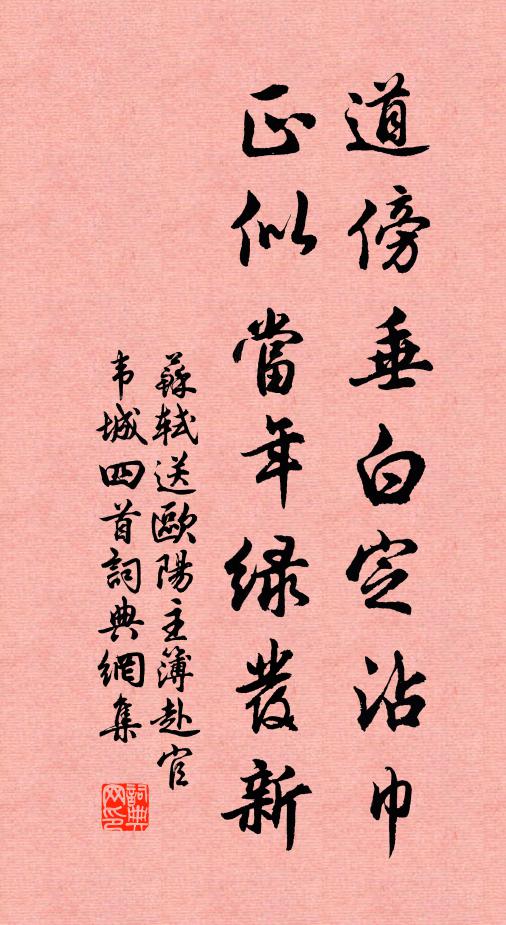 道傍垂白定沾巾
正似當年綠發新
蘇軾送歐陽主簿赴官
韦城四首詞典網集
詞典网印